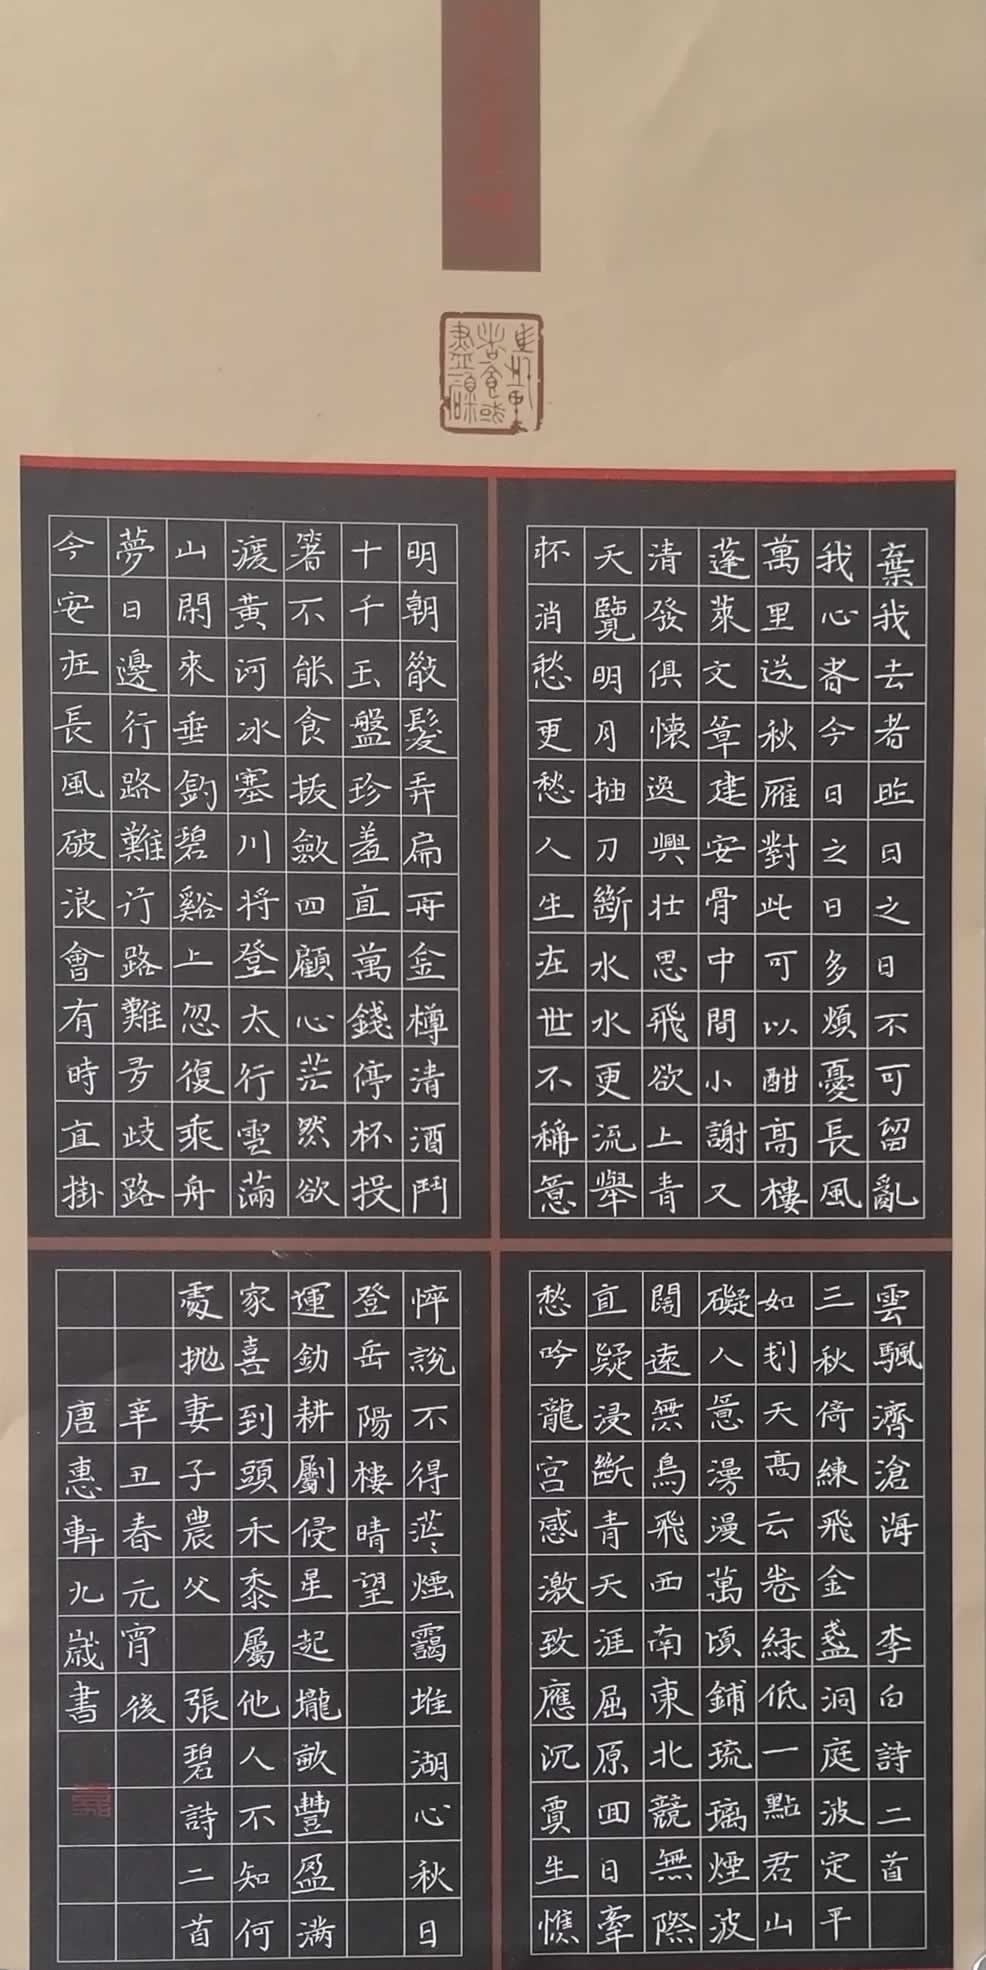 棄我去者昨日之日不可留亂
我心者今日之日多煩憂長風
萬里送秋雁對此可以酣高樓
蓬萊文章建安骨中間小謝又
清發俱懷逸興壯思飛欲上青
天覽明月抽刀斷水水更流舉
杯消愁更愁人生在世不稱意
明朝散髮弄扁再金樽清酒鬥
十千玉盤珍羞直萬錢停杯投
箸不能食拔劍四顧心茫然欲
渡黃河冰塞川將登太行雲滿
山閑來垂釣碧谿上忽復乘舟
夢日邊行路難行路難多歧路
今安在長風破浪會有時直掛
雲颿濟滄海 李白詩二首
三秋倚練飛金盞洞庭波定平
如刬天高云卷綠低一點君山
礙人意漫漫萬頃鋪琉璃煙波
闊遠無鳥飛西南東北競無際
直疑浸斷青天涯屈原回日牽
愁吟龍宮感激致應沉賈生憔
悴說不得茫茫煙靄堆湖心秋日
登岳陽樓晴望
運鋤耕劚侵星起壠畝豐盈滿
家喜到頭禾黍屬他人不知何
處拋妻子農父 張碧詩二首
辛丑春元宵後
唐惠軒九歲書